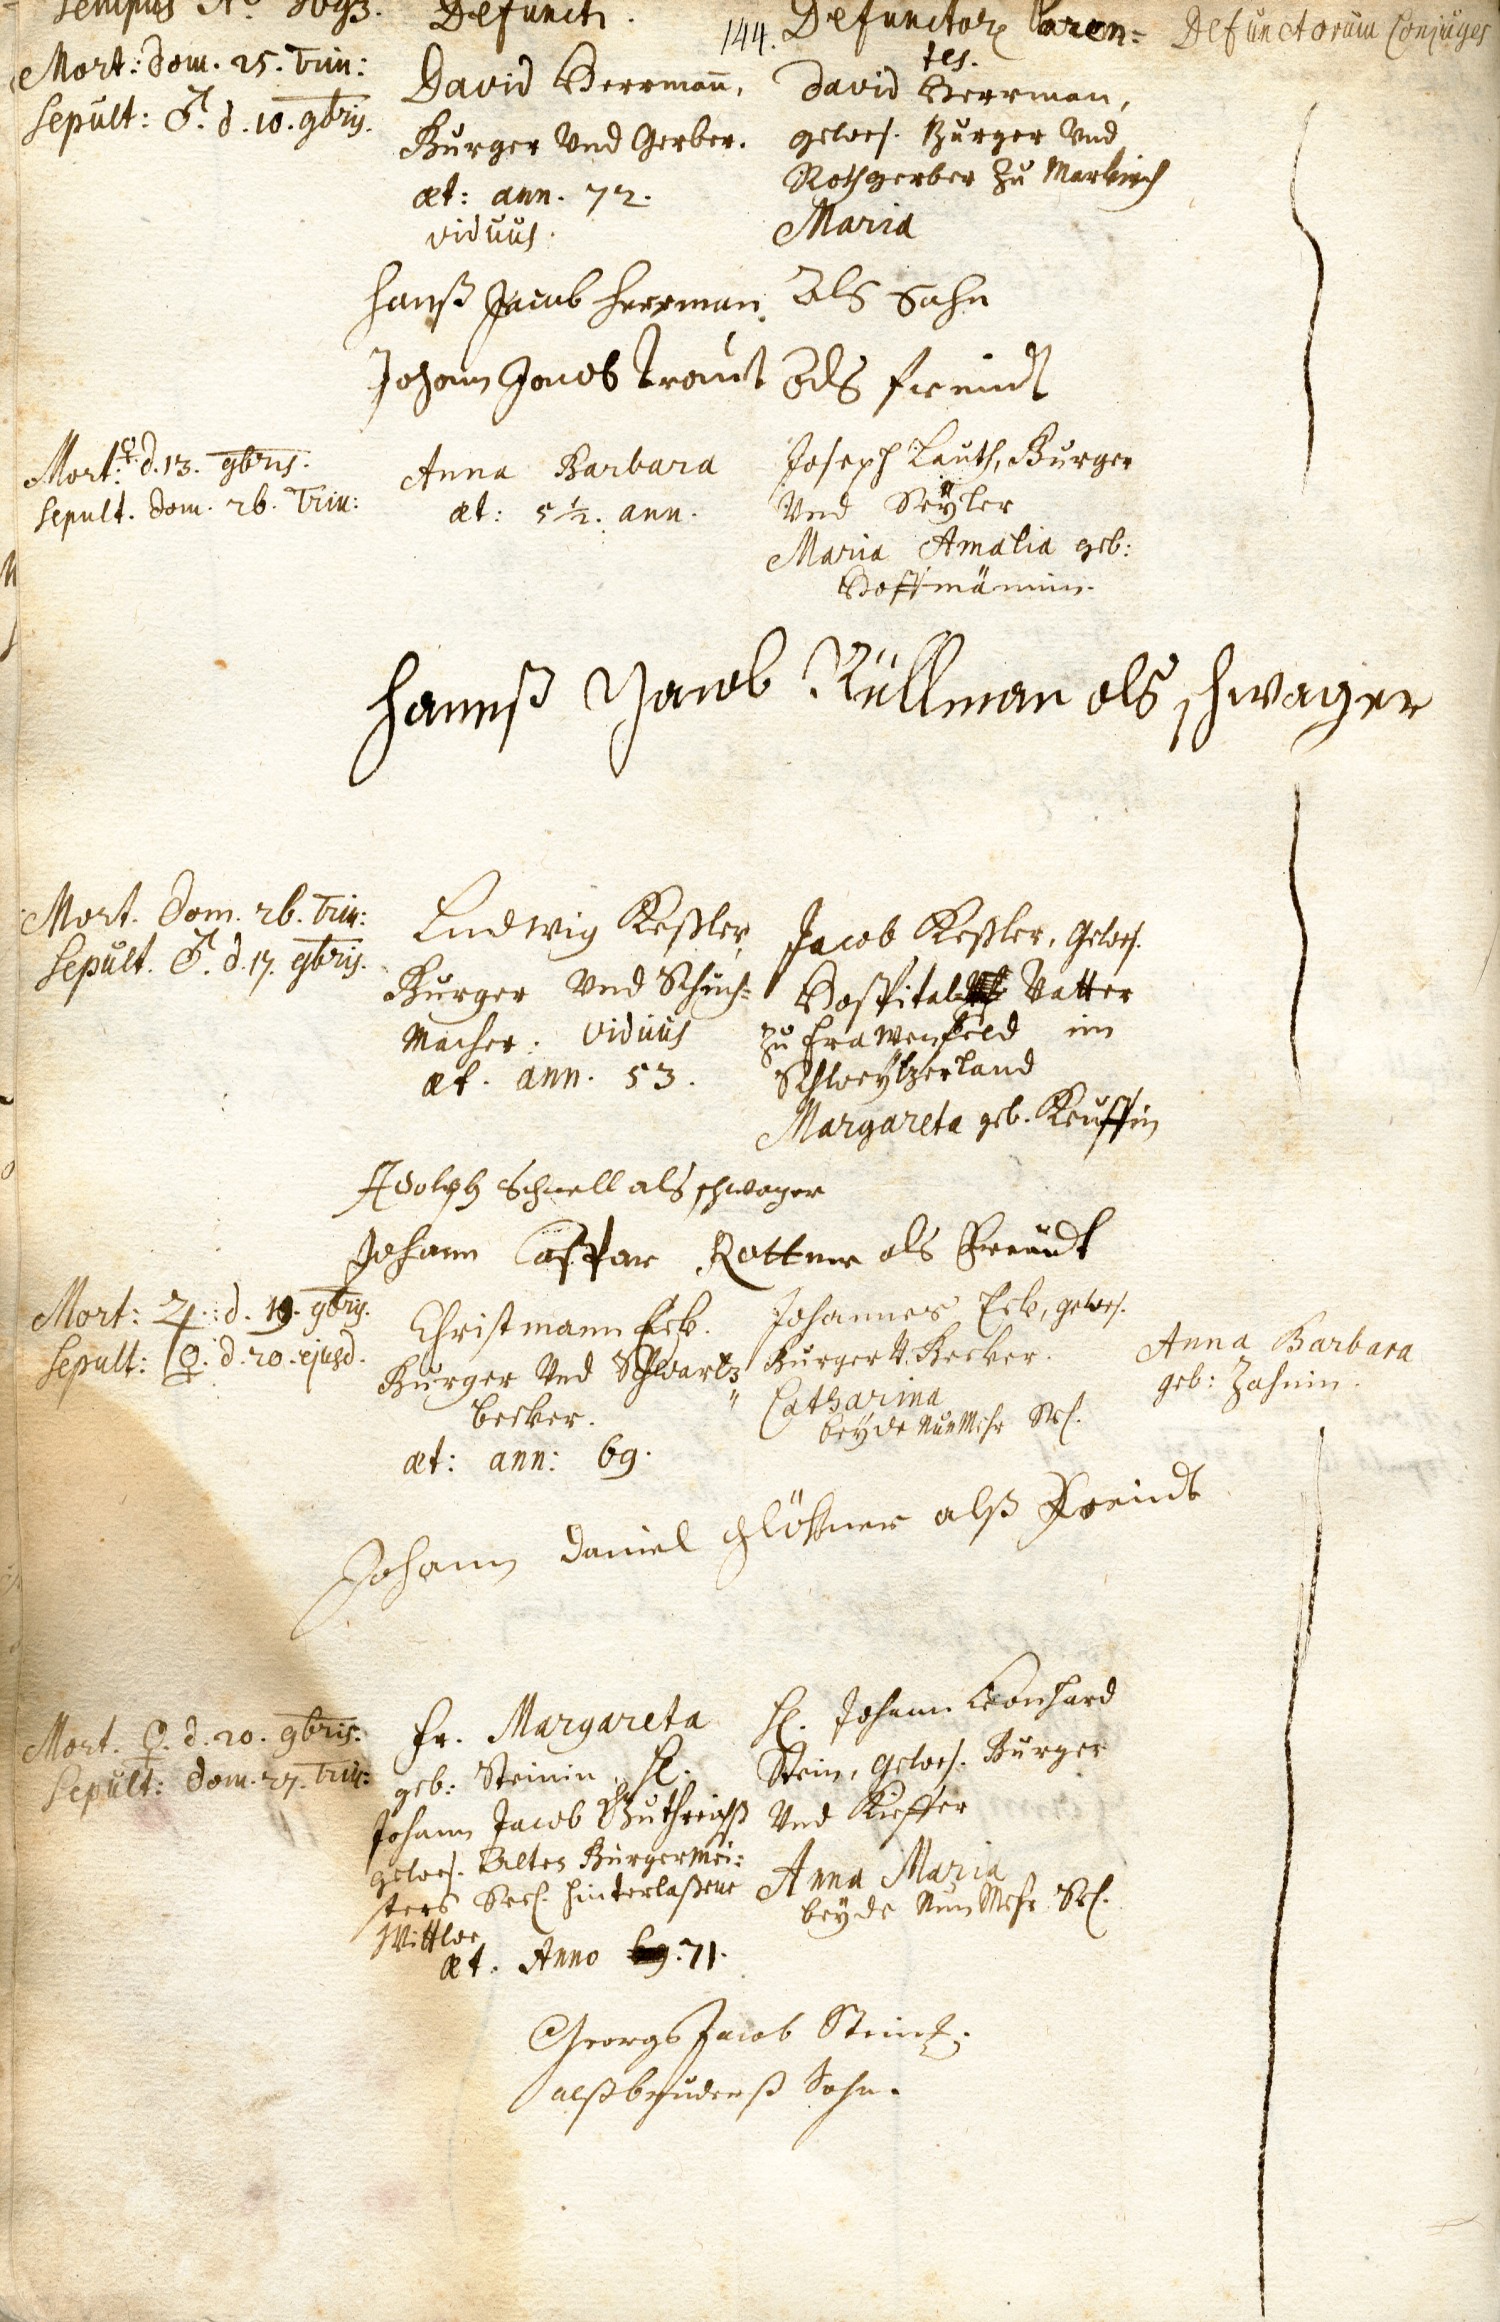 Tempus Aº 1693.
Defuncti.
144.
Defunctor. Paren=
tes.
Defunctorum Conjuges
Mort: dom. 25. Trin:
Sepult: ♂. d. 10. 9bris.
David Herrmañ,
Burger Und Gerber.
æt: ann. 72.
viduus.
David Herrman,
gewes. Burger Und
Rothgerber Zu Markirch
Maria
Hanß Jacob Herrman Als Sohn
Johann Jacob Traut Als freindt
Mort: ♀. d. 13. 9bris.
Sepult. dom. 26. Trin:
Anna Barbara
æt: 5 ½. ann.
Joseph Lauth, Burger
Und Seÿler
Maria Amalia geb:
Hoffmännin.
Hannß Jacob Küllman als schwager
Mort. dom. 26. Trin:
Sepult. ♂. d. 17. 9bris.
Ludwig Keßler,
Burger Und Schuh=
macher. viduus
æt. ann. 53.
Jacob Keßler, Gewes.
Hospital Vatter
Zu Frawenfeld im
Schweÿtzerland
Margareta geb. Keuffin
Adolph Schnell als schwager
Johann Caspar Rottner als Freündt
Mort: ♃. d. 19. 9bris.
Sepult: ♀. d. 20. ejusd.
Christmann Eck.
Burger Und Schwartz
becker.
æt: ann: 69.
Johannes Eck, gewes.
Burger V. Becker.
Catharina
beÿde NunMehr Sel.
Anna Barbara
geb: Zahnin.
Johann Daniel Glöckner alß Freindt
Mort. ♀. d. 20. 9bris.
Sepult: dom. 27. Trin:
Fr. Margareta
geb: Steinin, H.
Johann Jacob Guthreichß
gewes. Alten Burgermei=
sters Seel. hinterlaßene
Wittwe
æt. Anno 71.
H. Johann Leonhard
Stein, Gewes. Burger
Und Kieffer
Anna Maria
beÿde Nun Mehr Sel.
Georg Jacob Stein
alß bruderß Sohn.